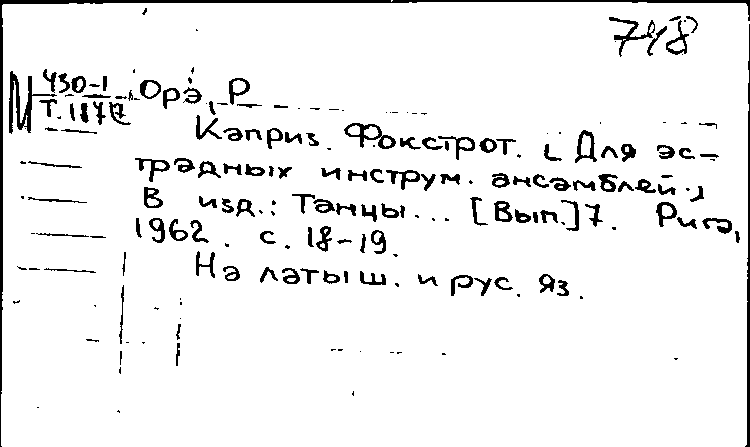 748
М 430-1
Орә, Р
Каприз. Фокстрот. [Для эс-
традных инструм. ансамблей.]
В изд.: Танцы... [Вып.]7. Рига,
1962. с. 18-19.
На латыш. и рус. яз.